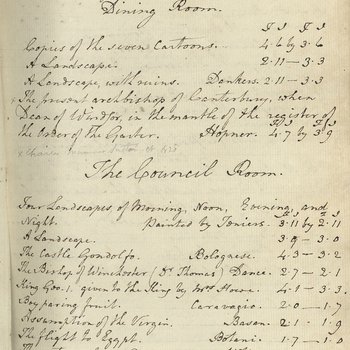 Dining Room.
F I F I
Copies of the seven Cartoons. 4..6 by 3..6
A Landscape. 2..11 — 3..3
A Landscape, with ruins. Dankers. 2..11 — 3..3
The present archbishop of Canterbury, when
Dean of Windsor, in the mantle of the register of
the order of the Garter. Hopner. 4..7 by 3..9
The Council Room.
Four Landscapes of Morning, Noon, Evening, and
Night. Painted by Teniers. 3..11 by 2..11
A Landscape. 3..9 — 3..0
The Castle Gondolfo. Bolognese. 4..3 — 3..2
The Bishop of Winchester (Dr Thomas) Dance. 2..7 — 2..1
King Geo: 1. given to the King by Mrs 4..1 — 3..3
Boy paring fruit. Caravagio. 2..0 — 1..7
Assumption of the Virgin. Basan. 2..1 — 1..9
The flight to Egypt. Bottani. 1..7 — 1..0